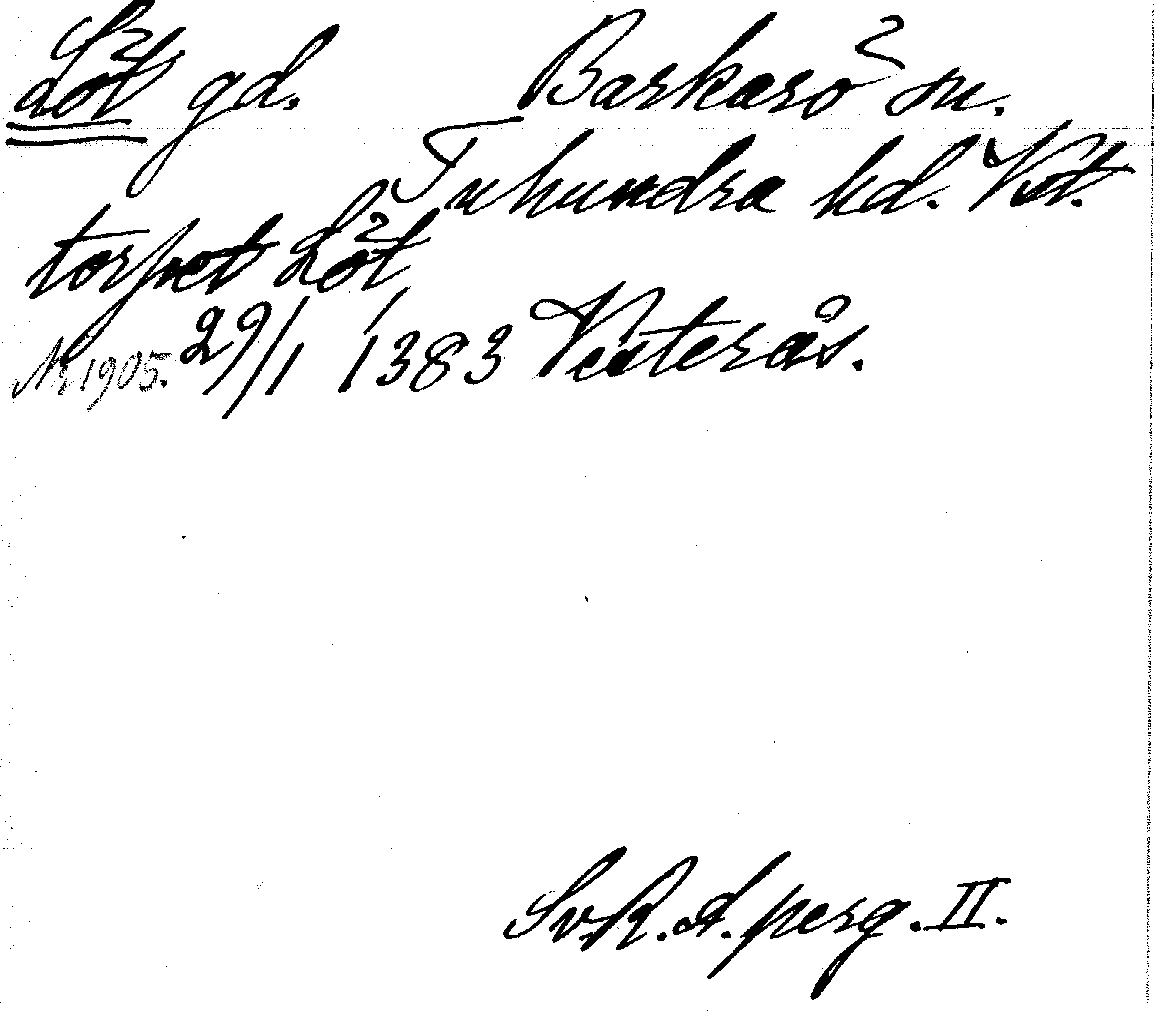 Löt gd. Barkarö sn.
Tuhundra hd. Vstm.
torpet Löt
Nr 1905. 29/1 1383 Västerås.
Sv. R. A. perg. II.